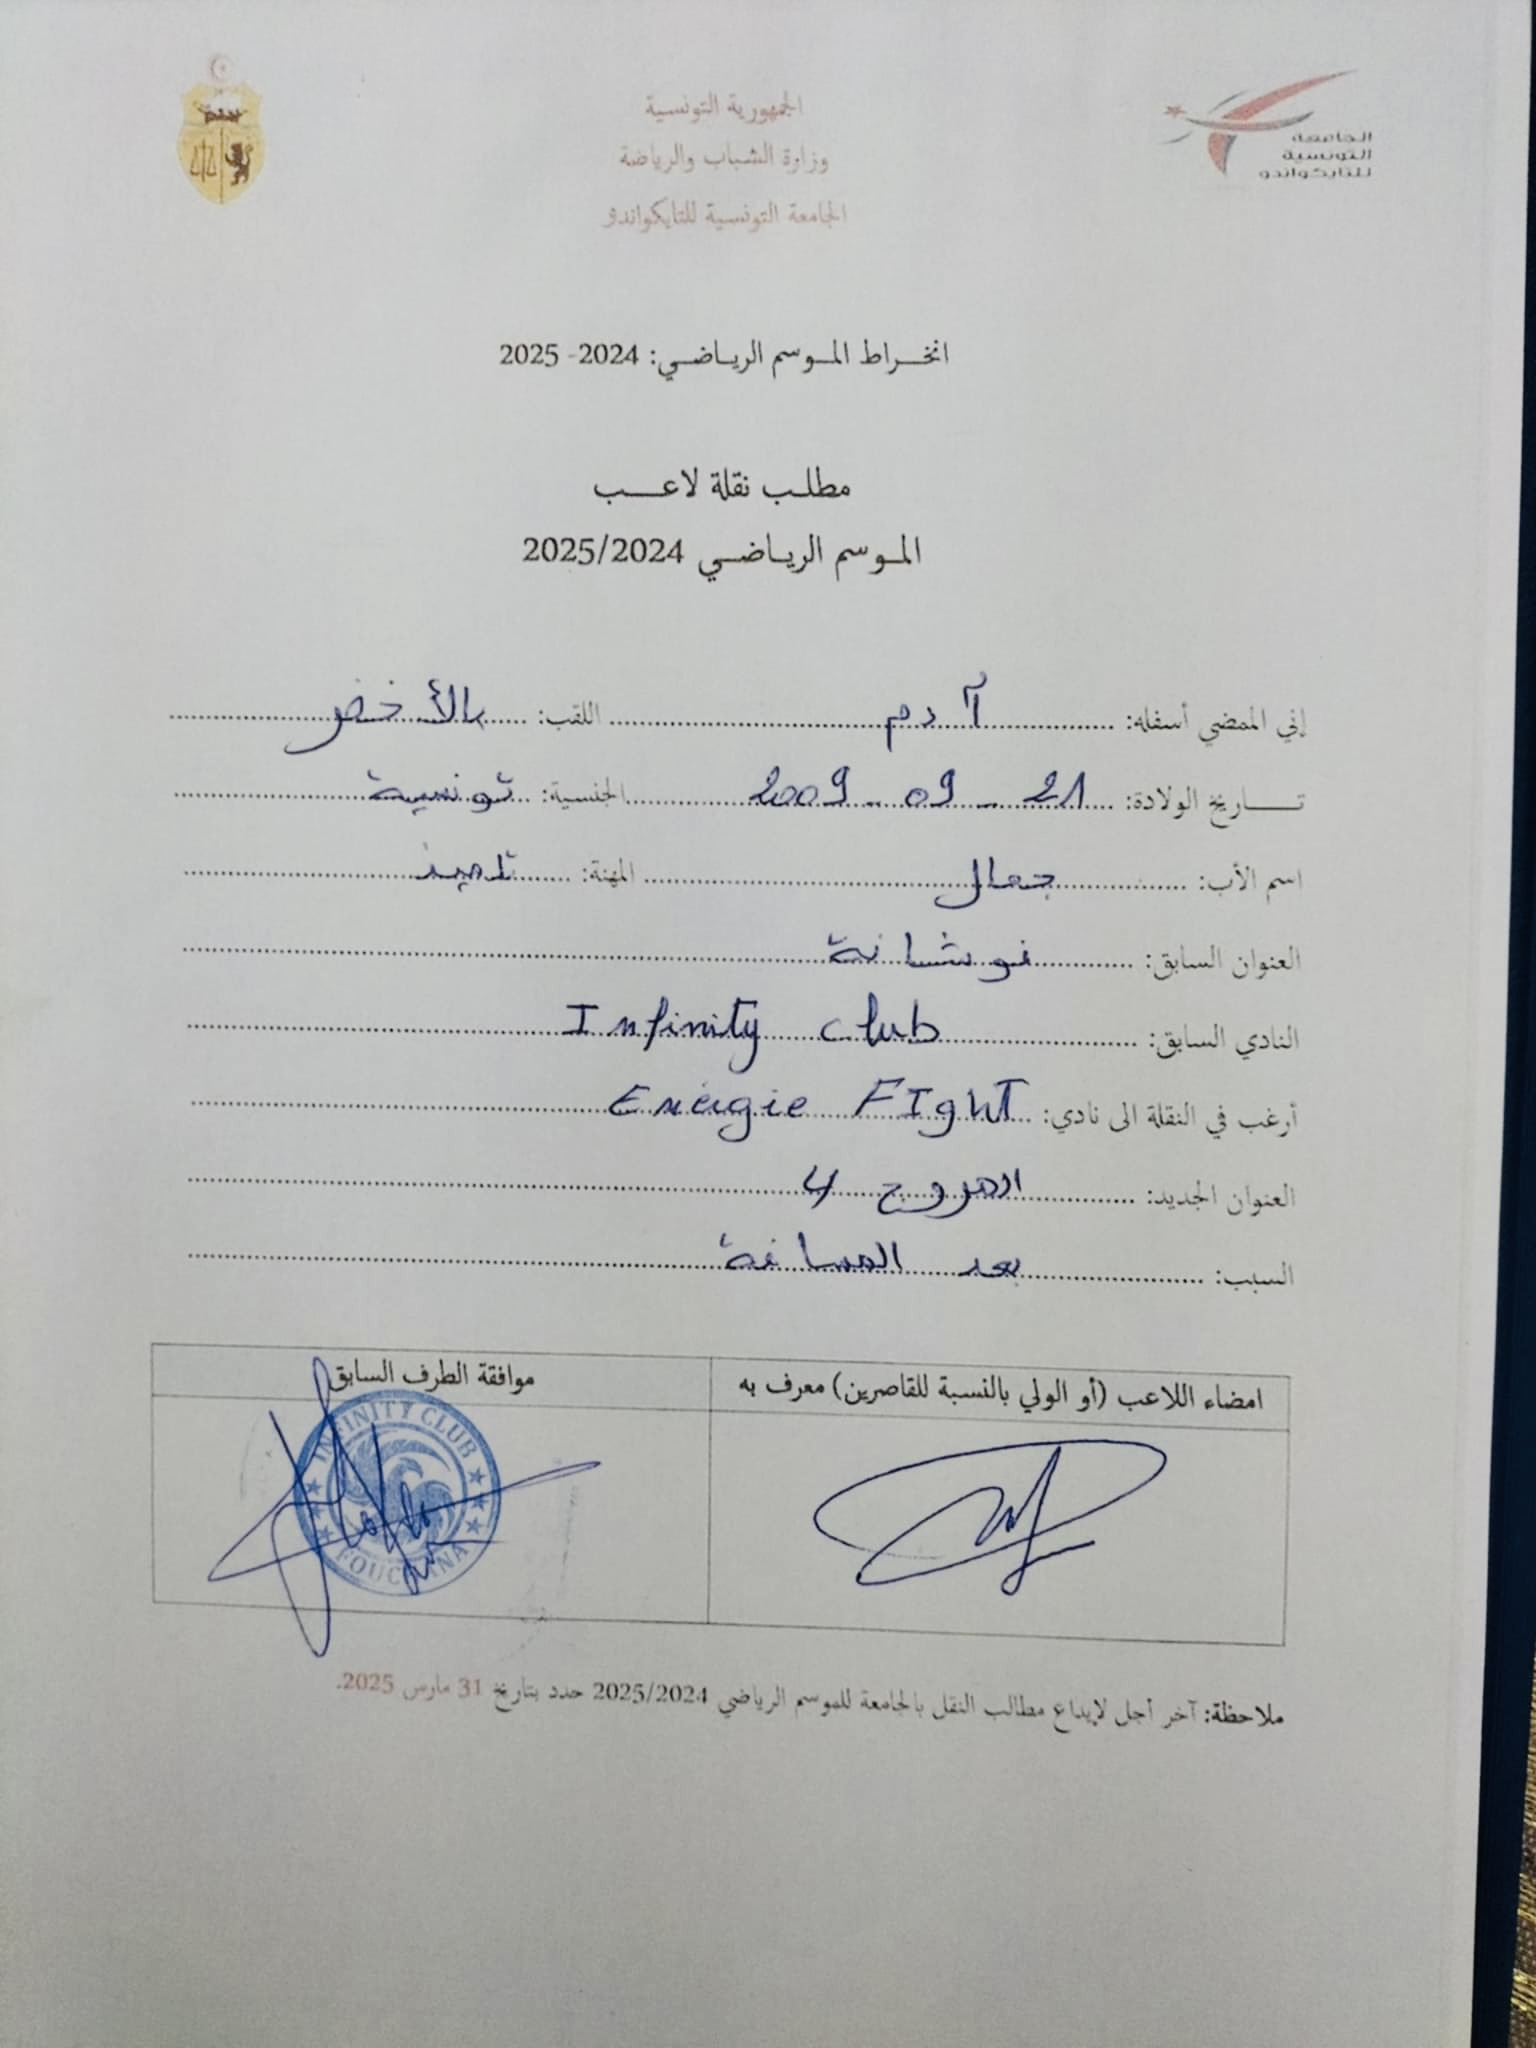 الجمهورية التونسية
وزارة الشباب والرياضة
الجامعة التونسية للتايكواندو
الجامعة
التونسية
للتايكواندو
انخراط الموسم الرياضي: 2024- 2025
مطلب نقلة لاعب
الموسم الرياضي 2025/2024
إني الممضي أسفله: آدم اللقب: بالأخضر
تاريخ الولادة: 21 - 09 - 2009 الجنسية: تونسية
اسم الأب: جمال المهنة: تلميذ
العنوان السابق: فوشانة
النادي السابق: Infinity club
أرغب في النقلة الى نادي: Energie FIghT
العنوان الجديد: المروج 4
السبب: بعد المسافة
امضاء اللاعب (أو الولي بالنسبة للقاصرين) معرف به
موافقة الطرف السابق
INFINITY CLUB
FOUCHANA
ملاحظة: آخر أجل لإيداع مطالب النقل بالجامعة للموسم الرياضي 2025/2024 حدد بتاريخ 31 مارس 2025.